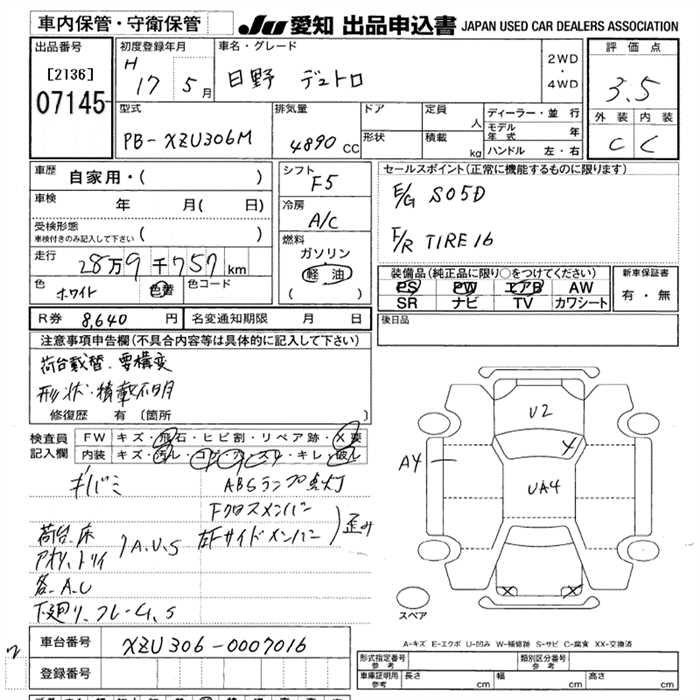 車内保管・守衛保管
JU 愛知 出品申込書 JAPAN USED CAR DEALERS ASSOCIATION
出品番号
[2136]
07145
初度登録年月
H 17 5月
車名・グレード
日野 デュトロ
2WD
・
4WD
評価点
3.5
型式
PB-XZU306M
排気量
4890 CC
ドア
形状
定員 人
積載 kg
ディーラー・並行
モデル年式 年
ハンドル 左・右
外装 内装
C C
車歴 自家用・( )
車検 年 月( 日)
受検形態
車検付きのみ記入して下さい ( )
走行 28万9千757 km
色 ホワイト 色替 色コード
シフト
F5
冷房
A/C
燃料
ガソリン
軽油
( )
セールスポイント(正常に機能するものに限ります)
E/G S05D
F/R TIRE 16
装備品(純正品に限り○をつけてください)
PS PW エアB AW
SR ナビ TV カワシート
新車保証書
有・無
R券 8,640 円 名変通知期限 月 日
後日品
注意事項申告欄(不具合内容等は具体的に記入して下さい)
荷台載替.要構変
形状・積載不明
修復歴 有 (箇所 )
検査員記入欄
FW キズ・飛石・ヒビ割・リペア跡・X要
内装 キズ・汚レ・コゲ・穴・スレ・キレ・破レ
キバミ ABSランプ点灯
Fクロスメンバー
左Fサイドメンバー 歪み
荷台.床
アオリ、トリイ A.U.S
各.A.U
下廻り、フレーム.S
U2
A4
UA4
X
X X
スペア
A-キズ E-エクボ U-凹み W-補修跡 S-サビ C-腐食 XX-交換済
車台番号 XZU306-0007016
登録番号
形式指定番号 参考
類別区分番号 参考
車庫証明用 参考 長さ cm 幅 cm 高さ cm